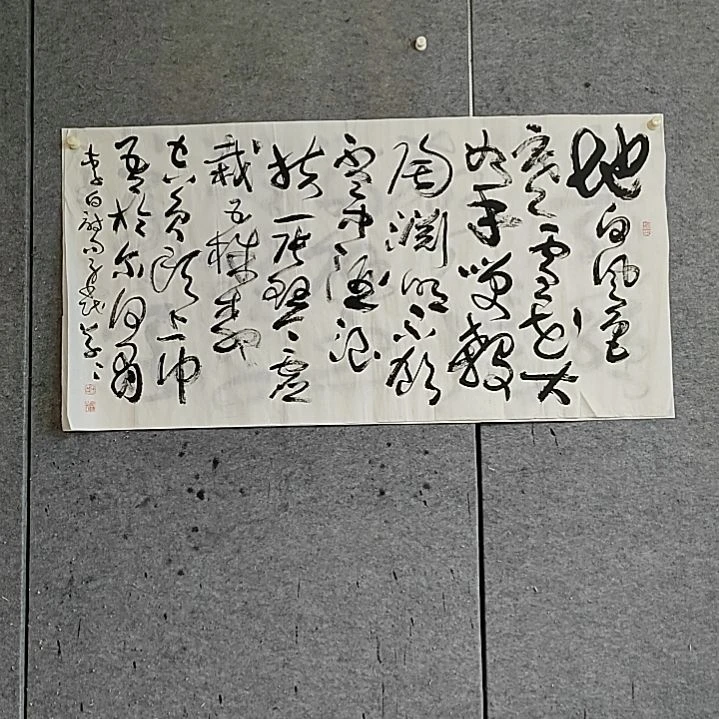 地白风色
寒雪花大
如手笑殺
陶淵明不飲
杯中酒浪
撫一張琴虚
栽五株柳
空負頭上巾
吾於尔何有
李白詩